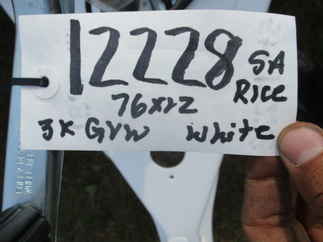 12228 SA
RICE
76x12
3K GVW White